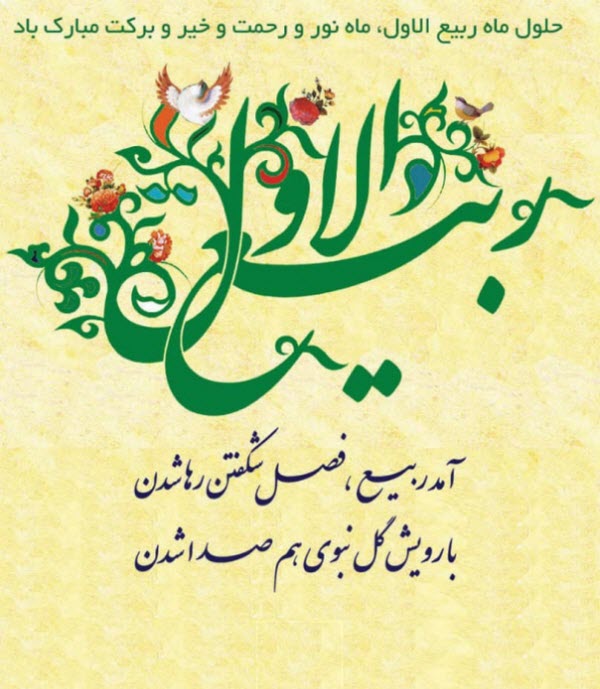 حلول ماه ربیع الاول، ماه نور و رحمت و خیر و برکت مبارک باد
ربیع الاول
آمد ربیع ، فصل شکفتن رها شدن
با رویش گل نبوی هم صدا شدن